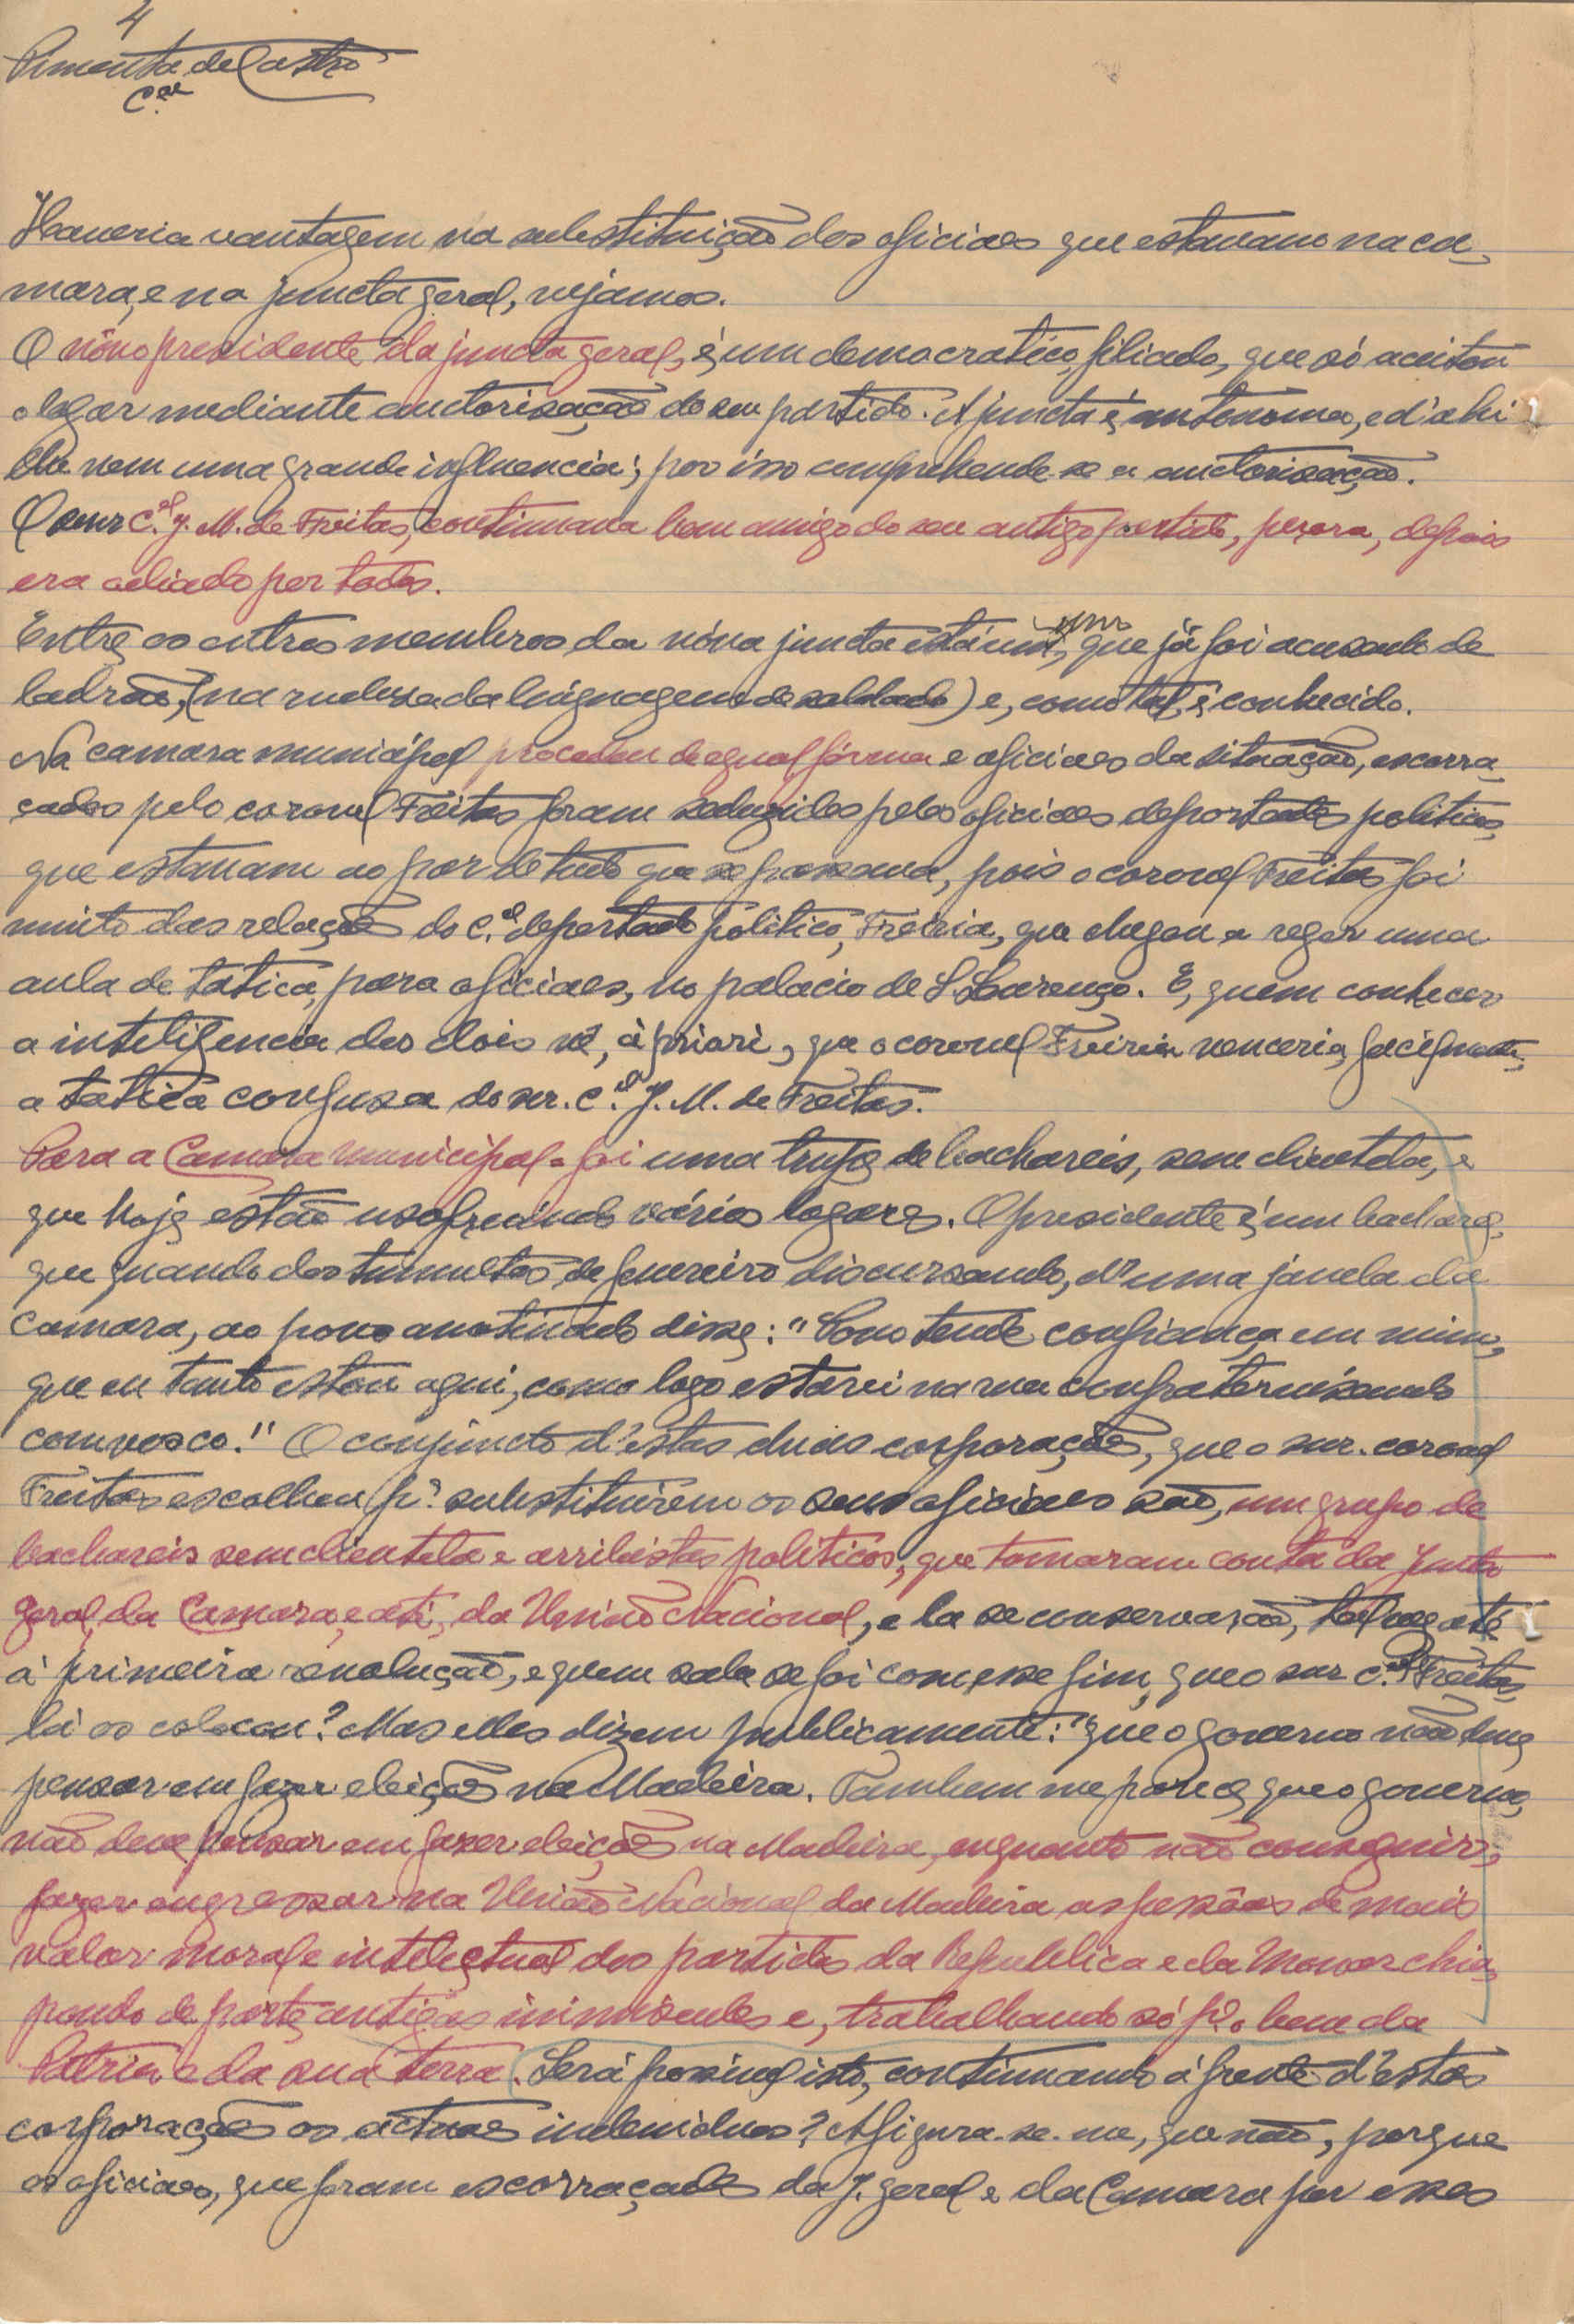 4
Pimenta de Castro
C.el
Haveria vantagem na substituição dos oficiaes que estavam na ca-
mara, e na juncta geral, vejamos.
O nôvo presidente da juncta geral, é um democratico, filiado, que só aceitou
o logar mediante auctorisação do seu partido. A juncta é autonoma, e d'ahi
lhe vem uma grande influencia; por isso comprehende-se a auctorisação.
O snr C.el J. M. de Freitas, continuava bem amigo do seu antigo partido, depois
era odiado por todos.
Entre os outros membros da nóva juncta está um, que já foi acusado de
ladrão, (na rudesa da linguagem de soldado) e, como tal, é conhecido.
Na camara municipal procedeu de egual fórma e oficiaes da situação, escorra-
çados pelo coronel Freitas foram seduzidos pelos oficiaes deportados politicos,
que estavam ao par de tudo que se passava, pois o coronel Freitas foi
muito das relações do C.el deportado politico, Freiria, que chegou a reger uma
aula de tatica, para oficiaes, no palacio de S. Lourenço. E, quem conhecer
a inteligencia dos dois vê, à priori, que o coronel Freiria venceria, facilmente,
a tatica confusa do snr. C.el J. M. de Freitas.
Para a Camara municipal foi uma trupe de bachareis, sem clientela, e
que hoje estão usofruindo vários logares. O presidente é um bacharel,
que quando dos tumultos de fevereiro discursando, d'uma janela da
camara, ao povo amotinado disse: "Povo tende confiança em mim,
que eu tanto estou aqui, como logo estarei na rua confraternisando
comvosco." O conjuncto d'estas duas corporações, que o snr. coronel
Freitas escolheu p.ª substituirem os seus oficiaes são, um grupo de
bachareis sem clientela e arribistas politicos, que tomaram conta da Junta
geral, da Camara, e até, da União Nacional, e la se conservarão, talvez até
á primeira revolução, e quem sabe se foi com esse fim, que o snr C.el Freitas
lá os colocou? Mas elles dizem publicamente: "que o governo não deve
pensar em fazer eleições na Madeira. Tambem me parece, que o governo,
não deve pensar em fazer eleições na Madeira, enquanto não conseguir,
fazer ingressar na União Nacional da Madeira as pessôas de mais
valor moral e intelectual dos partidos da Republica e da Monarchia,
pondo de parte, antigas inimisades e, trabalhando só p.ª o bem da
Patria e da sua terra. Será possivel isto, continuando á frente d'estas
corporações os actuaes individuos? Afigura-se-me, que não, porque
os oficiaes, que foram escorraçados da J. geral e da Camara por esses